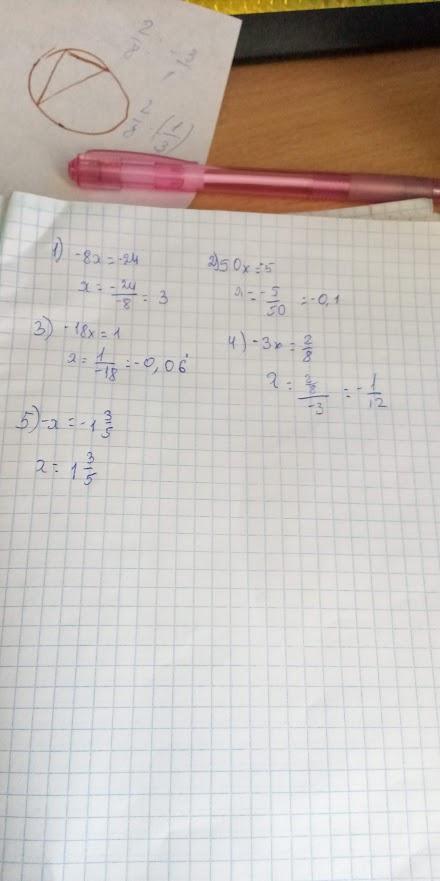 1) -8x = -24
x = -24/-8 = 3
2) 50x = -5
x = -5/50 = -0,1
3) -18x = 1
x = 1/-18 = -0,06
4) -3x = 2/8
x = 2/8/-3 = -1/12
5) -x = -1 3/5
x = 1 3/5